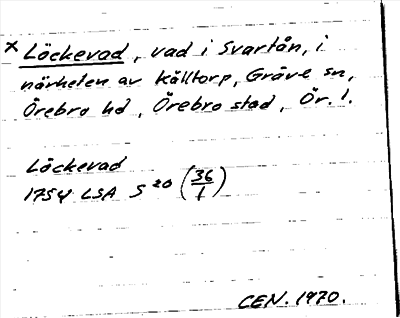 × Löckevad, vad i Svartån, i
närheten av Källtorp, Gräve sn,
Örebro hd, Örebro stad, Ör. l.
Löckevad
1754 LSA S 20 (36/1)
CEN. 1970.